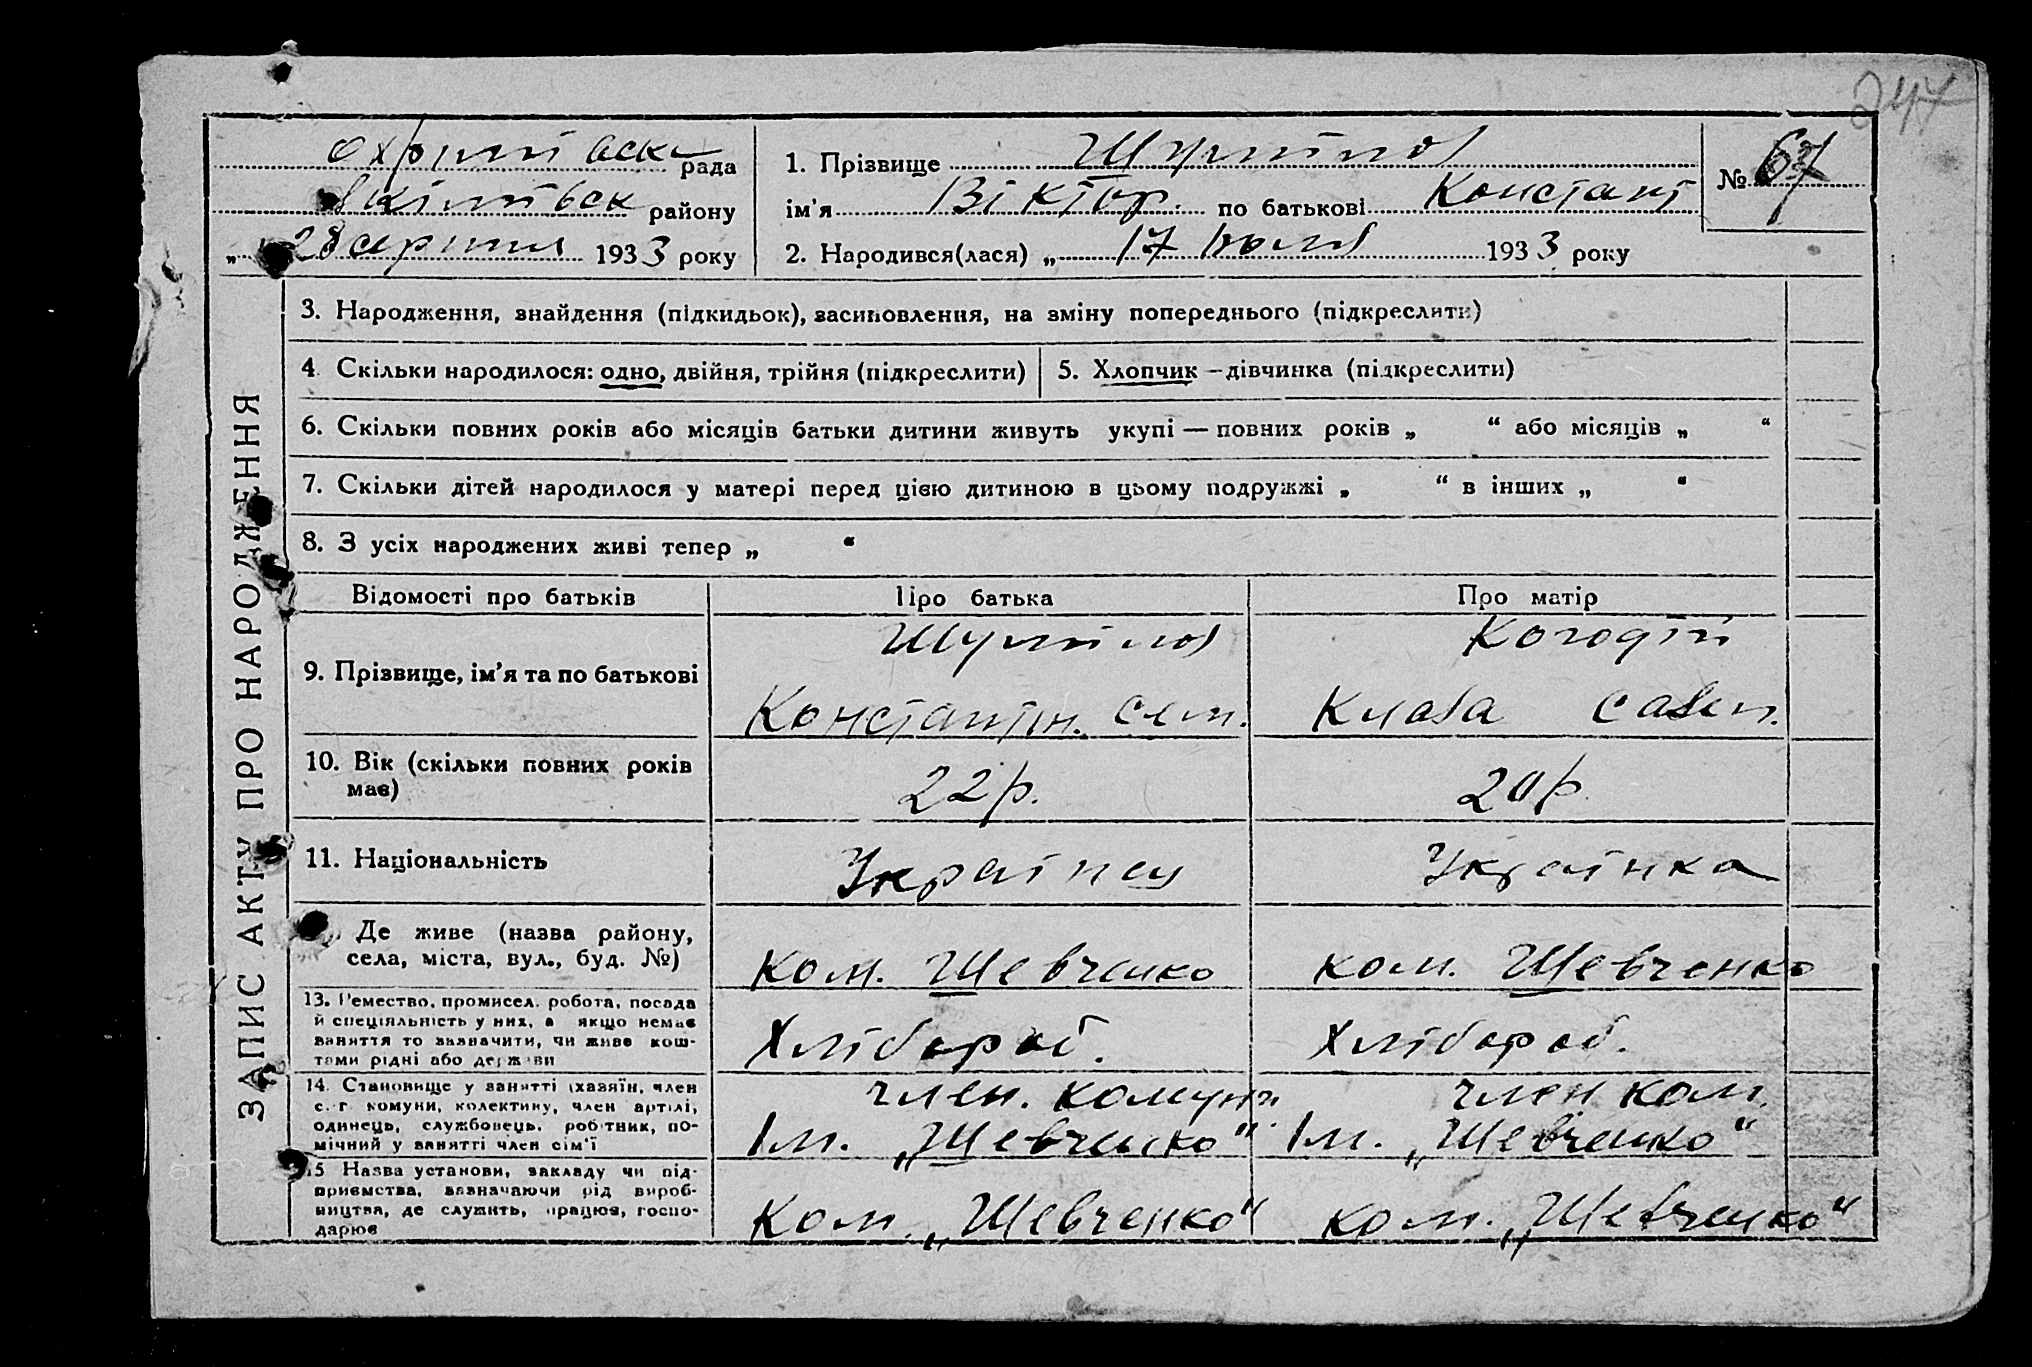 247
Охримівськ рада
Якимівськ району
„ 28 серпня 1933 року
1. Прізвище Шумілов
ім'я Віктор. по батькові Констант
№ 67
2. Народився(лася) „ 17 юля 1933 року
ЗАПИС АКТУ ПРО НАРОДЖЕННЯ
3. Народження, знайдення (підкидьок), засиновлення, на зміну попереднього (підкреслити)
4. Скільки народилося: одно, двійня, трійня (підкреслити)
5. Хлопчик – дівчинка (підкреслити)
6. Скільки повних років або місяців батьки дитини живуть укупі — повних років „ “ або місяців „ “
7. Скільки дітей народилося у матері перед цією дитиною в цьому подружжі „ “ в інших „ “
8. З усіх народжених живі тепер „ “
Відомості про батьків
Про батька
Про матір
9. Прізвище, ім'я та по батькові
Шумілов
Констянтин. Сем.
Клава Савел.
10. Вік (скільки повних років
має)
22 р.
20 р.
11. Національність
Українец
Українка
Де живе (назва району,
села, міста, вул., буд. №)
ком. Шевченко
ком. Шевченко
13. Ремество, промисел, робота, посада
й спеціяльність у них, а якщо немає
заняття то зазначити, чи живе кош-
тами рідні або держави
Хлібороб.
Хлібороб.
14. Становище у занятті (хазяїн, член
с.-г. комуни, колективу, член артілі,
одинець, службовець, робітник, по-
мічний у занятті член сім'ї
член. комуни
Ім. „Шевченко“.
член ком.
Ім. „Шевченко“
15 Назва установи, закладу чи під-
приємства, зазначаючи рід вироб-
ництва, де служить, працює, госпо-
дарює
Ком. „Шевченко“
ком. „Шевченко“